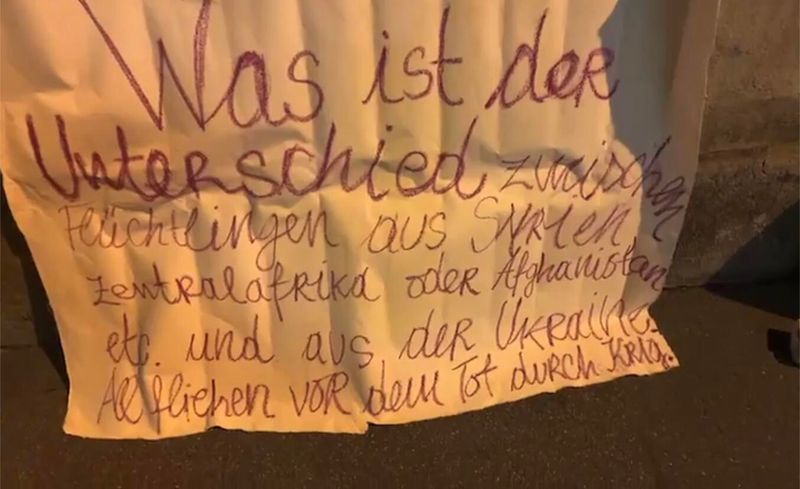 Was ist der
Unterschied zwischen
Flüchtlingen aus Syrien
Zentralafrika oder Afghanistan
etc. und aus der Ukraine.
All fliehen vor dem Tot durch Krieg.